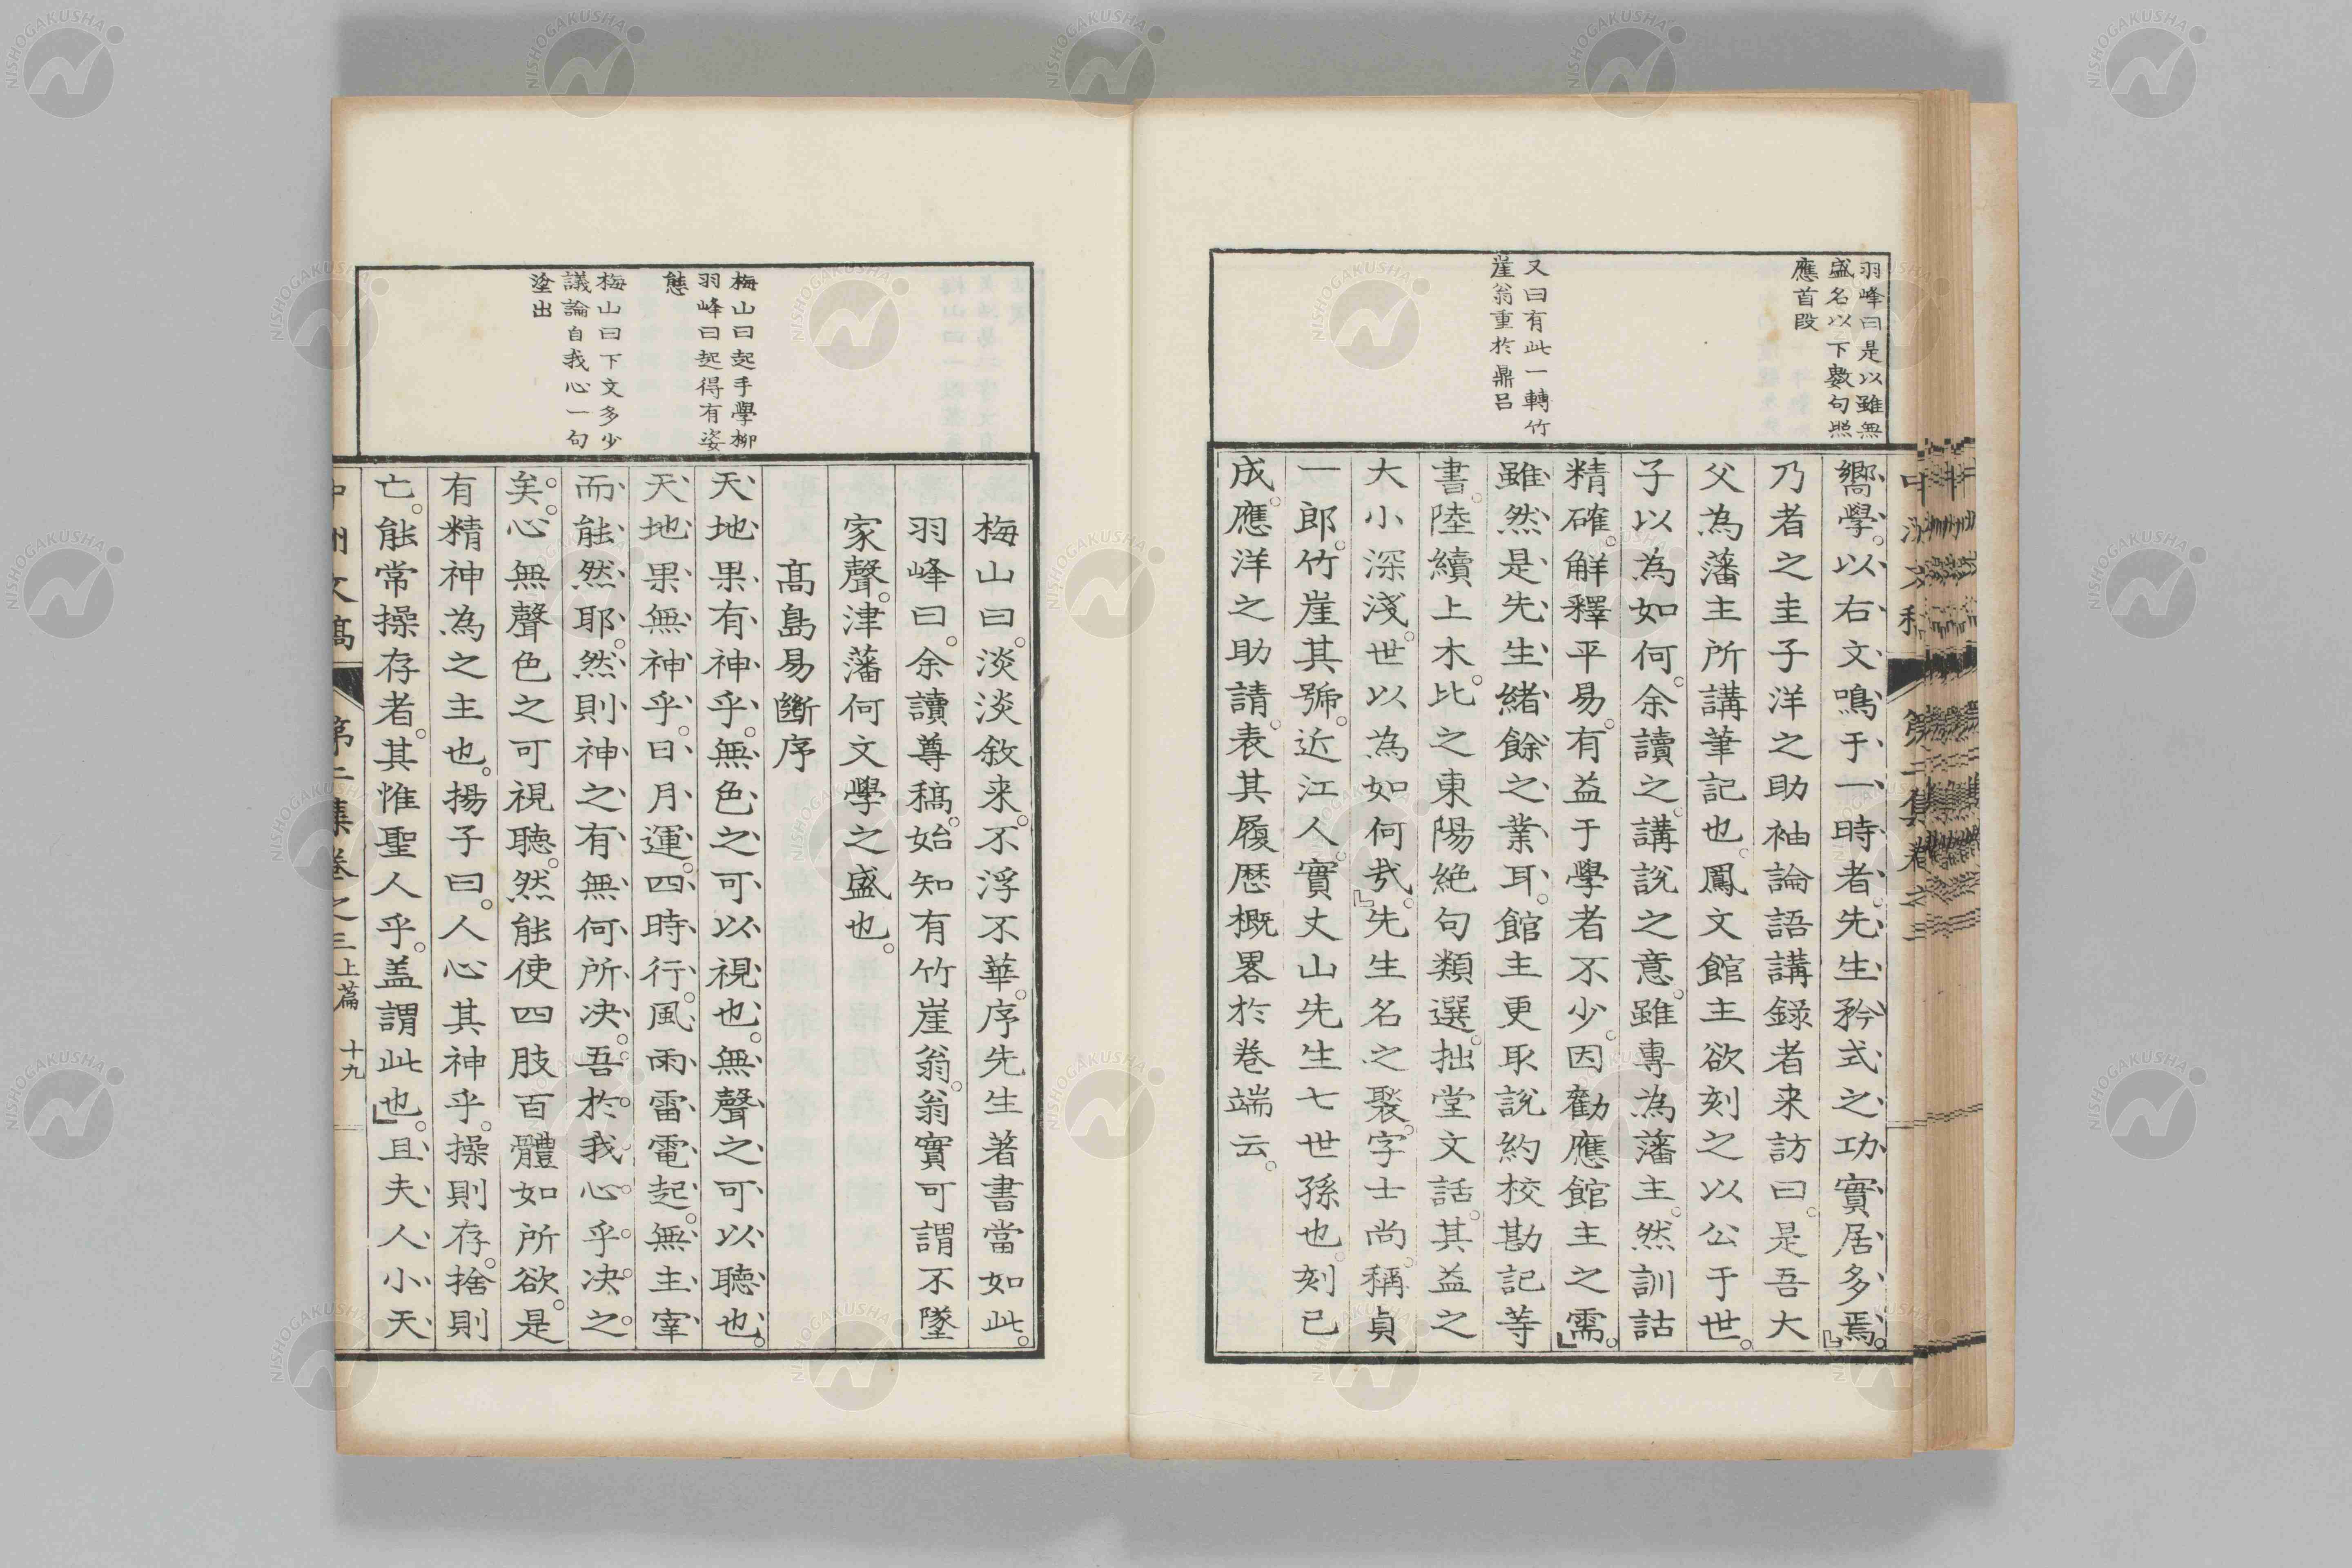 羽峰曰是以雖無
盛名以下數句照
應首段
又曰有此一轉竹
崖翁重於鼎呂
嚮學。以右文鳴于一時者。先生矜式之功實居多焉。』
乃者之圭子洋之助袖論語講録者来訪曰。是吾大
父為藩主所講筆記也。鳳文館主欲刻之以公于世。
子以為如何。余讀之。講説之意。雖專為藩主。然訓詁
精確。解釋平易。有益于學者不少。因勸應館主之需。』
雖然是先生緒餘之業耳。館主更取説約校勘記等
書。陸續上木。比之東陽絶句類選。拙堂文話。其益之
大小深淺。世以為如何哉。』先生名之褧。字士尚。稱貞
一郎。竹崖其號。近江人。實丈山先生七世孫也。刻已
成。應洋之助請。表其履歴概畧於卷端云。
梅山曰起手學柳
羽峰曰起得有姿
態
梅山曰下文多少
議論自我心一句
塗出
梅山曰。淡淡敘来。不浮不華。序先生著書當如此。
羽峰曰。余讀尊稿。始知有竹崖翁。翁實可謂不墜
家聲。津藩何文學之盛也。
髙島易斷序
天地果有神乎。無色之可以視也。無聲之可以聽也。
天地果無神乎。日月運。四時行。風雨雷電起。無主宰
而能然耶。然則神之有無何所决。吾於我心乎决之。
矣。心無聲色之可視聽。然能使四肢百體如所欲。是
有精神為之主也。揚子曰。人心其神乎。操則存。捨則
亡。能常操存者。其惟聖人乎。盖謂此也。』且夫人小天
中洲文稿 第二集卷之三上篇 十九
NISHOGAKUSHA